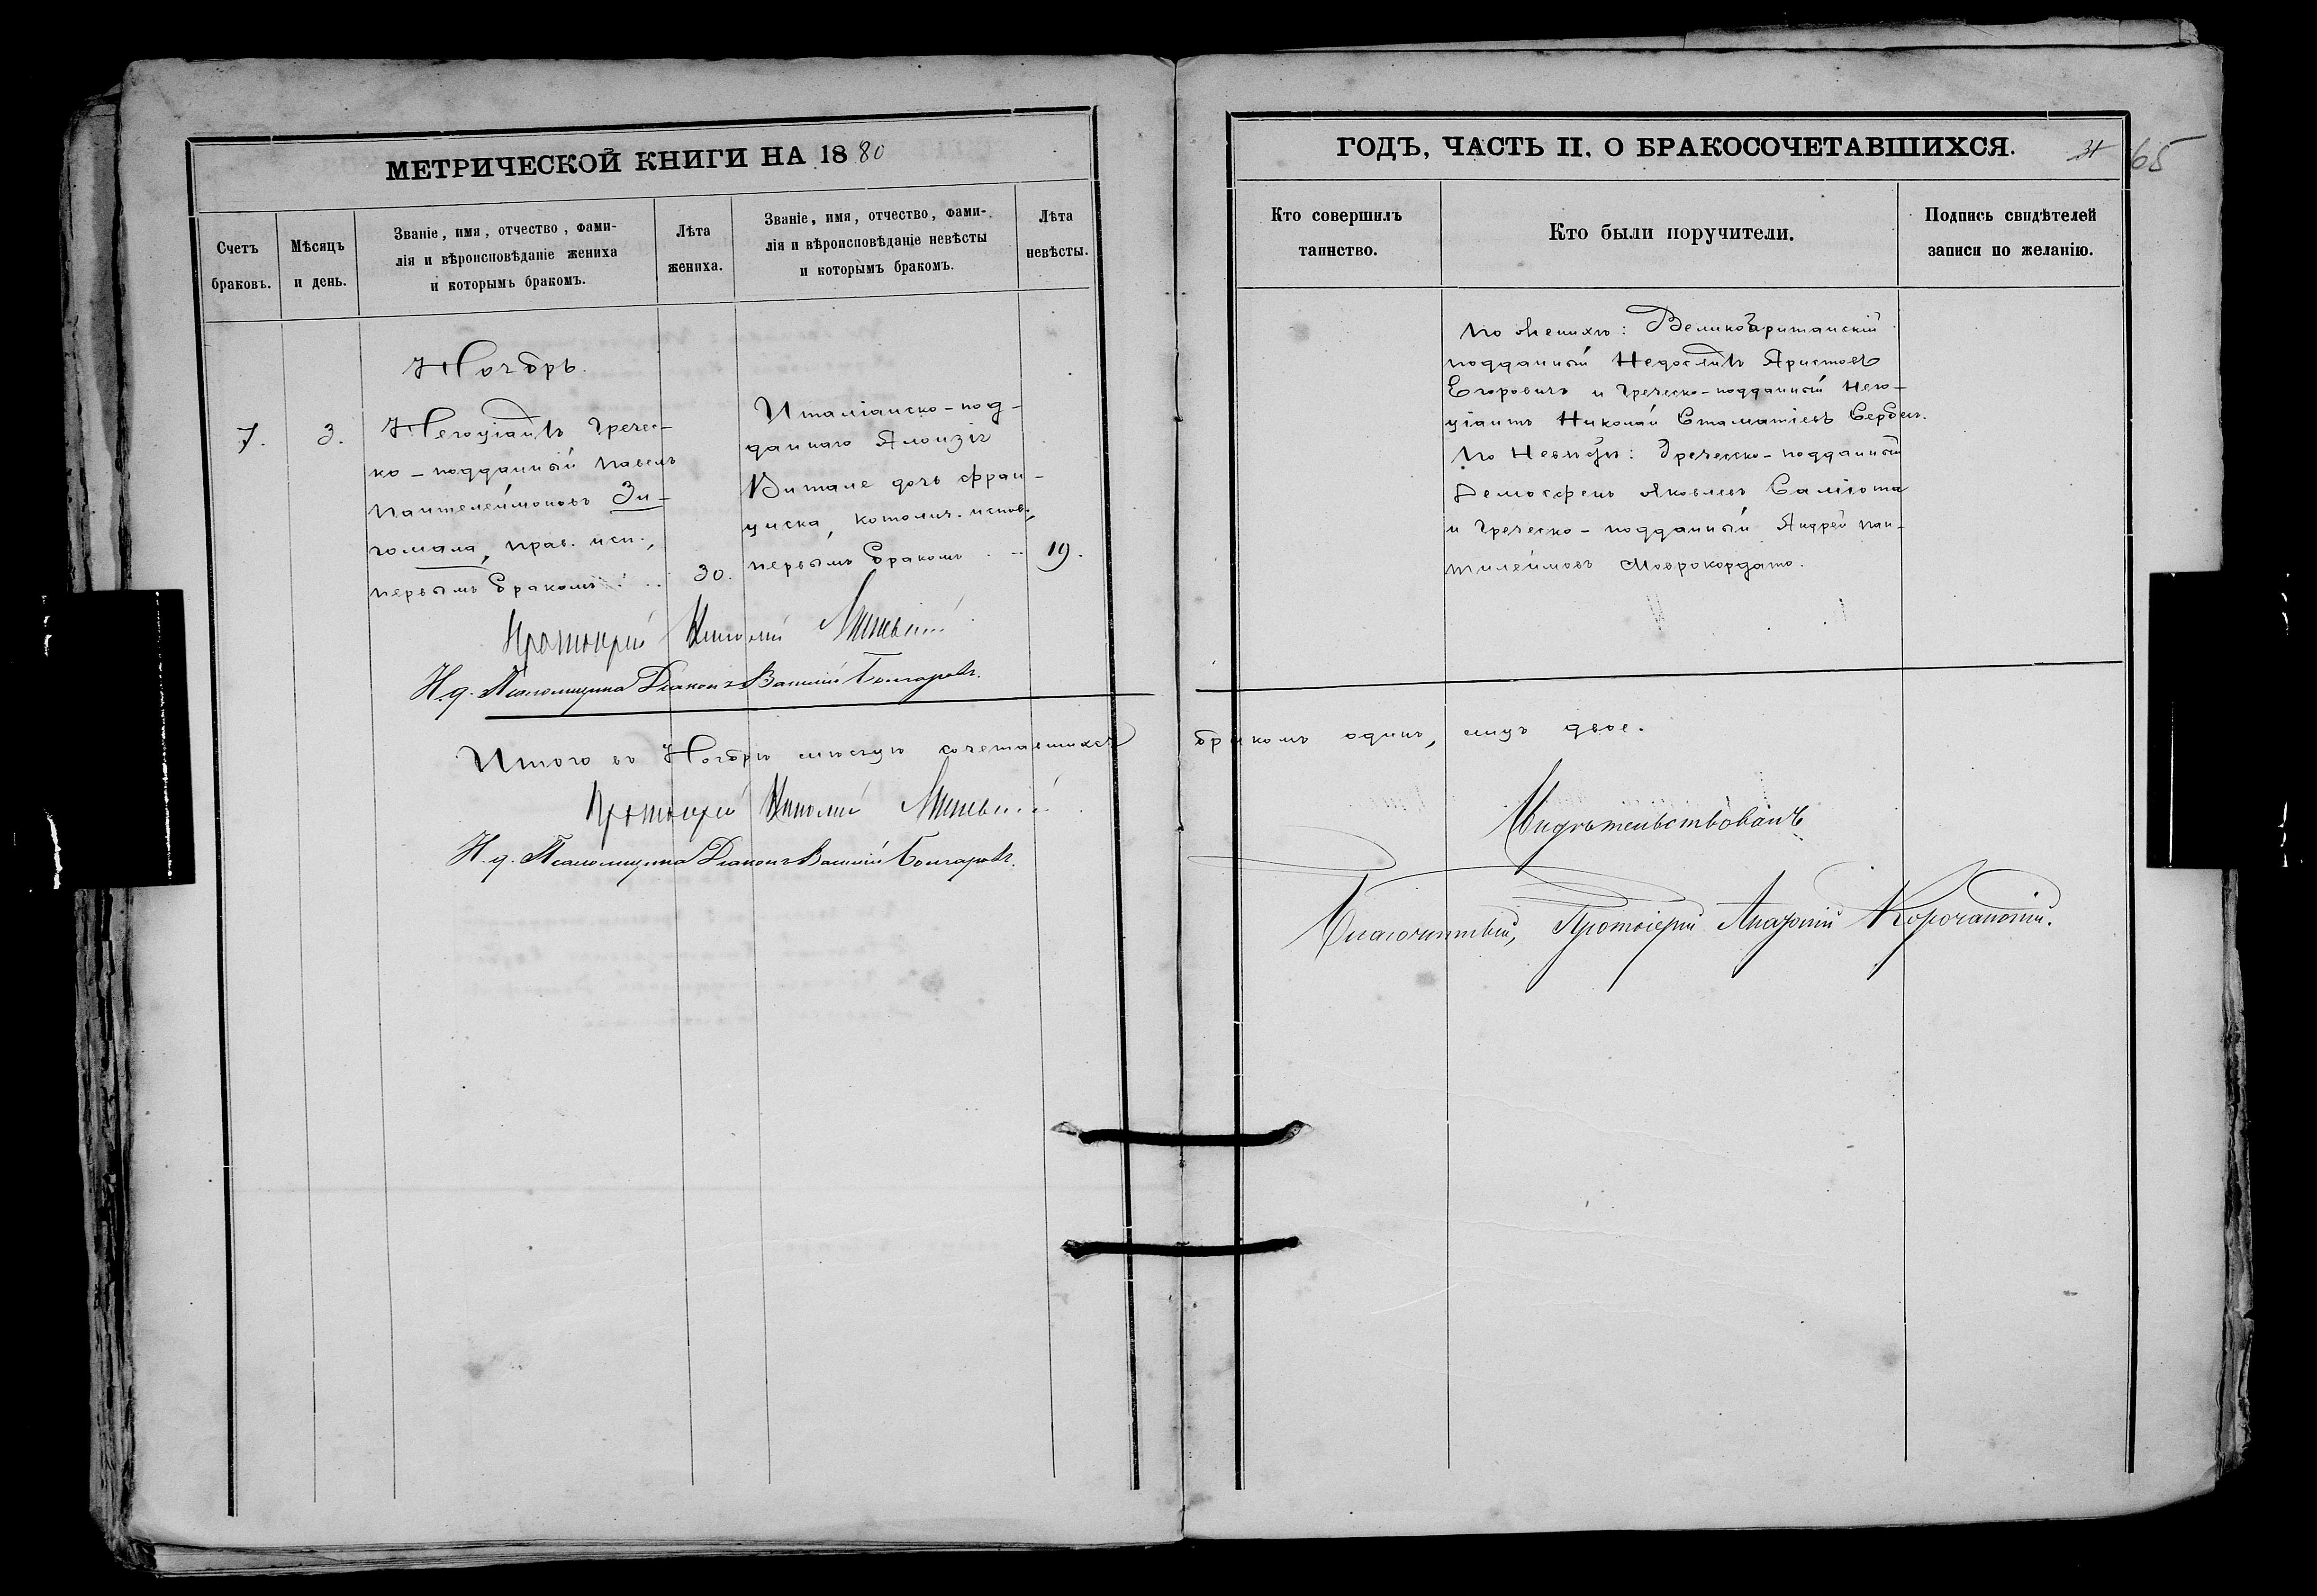 МЕТРИЧЕСКОЙ КНИГИ НА 1880
Счетъ браковъ.
Мѣсяцъ и день.
Званіе, имя, отчество, фами-
лія и вѣроисповѣданіе жениха
и которымъ бракомъ.
Лѣта жениха.
Званіе, имя, отчество, фами-
лія и вѣроисповѣданіе невѣсты
и которымъ бракомъ.
Лѣта невѣсты.
Ноябрь.
7.
3.
Негоціантъ Гречес-
ко-подданный Павелъ
Пантелеймоновъ Зи-
гомала, прав. исп.,
первымъ бракомъ
30.
Италіанско-под-
даннаго Алоизія
Витале дочь Фран-
циска, католич. испов.,
первымъ бракомъ
19.
Протоіерей Николай
И. д. Псаломщика Діаконъ Василій Болгаровъ.
Итого въ Ноябрѣ мѣсяцѣ сочетавшихся
Протоіерей Николай
И. д. Псаломщика Діаконъ Василій Болгаровъ.
ГОДЪ, ЧАСТЬ II, О БРАКОСОЧЕТАВШИХСЯ.
31 65
Кто совершилъ
таинство.
Кто были поручители.
Подпись свидѣтелей
записи по желанію.
По женихѣ: Великобританскій
подданный Аристовъ
Егоровичъ и Греческо-подданный Него-
ціантъ Николай Стаматіевъ Сербосъ.
По Невѣстѣ: Греческо-подданный
Демосфенъ Яковлевъ Саліота
и Греческо-подданный Андрей Пан-
тилеймовъ Маврокордато.
бракомъ одинъ, лицъ двое.
Свидѣтельствовалъ
Благочинный, Протоіерей Анатолій Корочанскій.